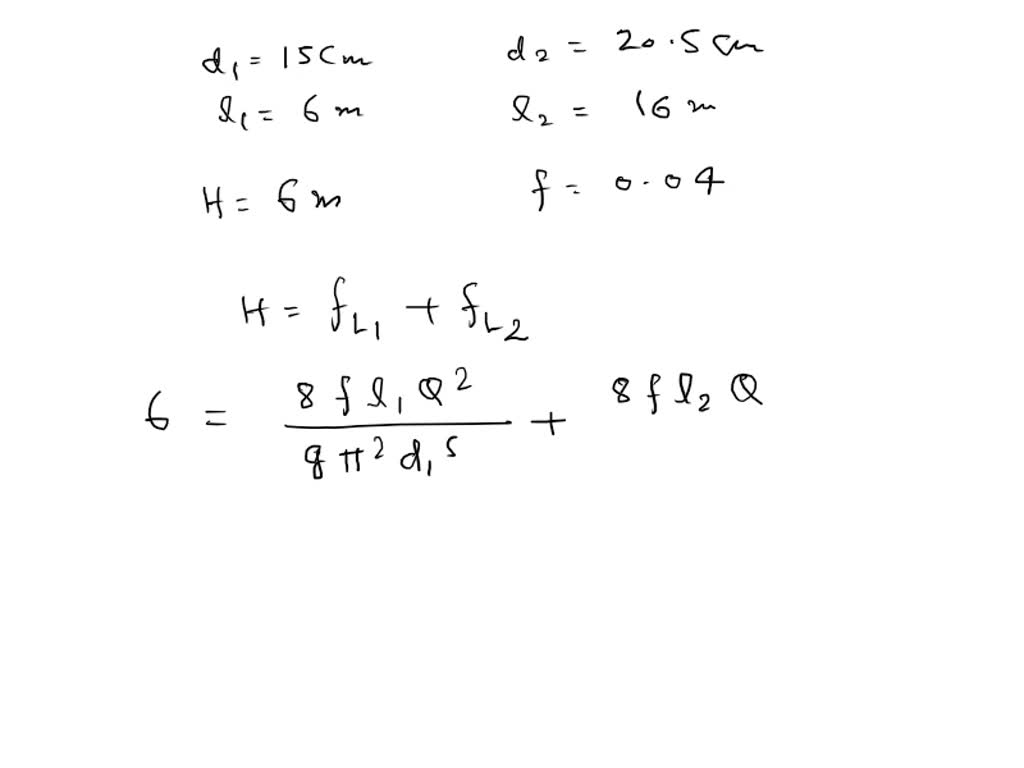 d₁ = 15 cm d₂ = 20.5 cm
l₁ = 6 m l₂ = 16 m
H = 6 m f = 0.04
H = f_L₁ + f_L₂
6 = 8 f l₁ Q² / g π² d₁⁵ + 8 f l₂ Q